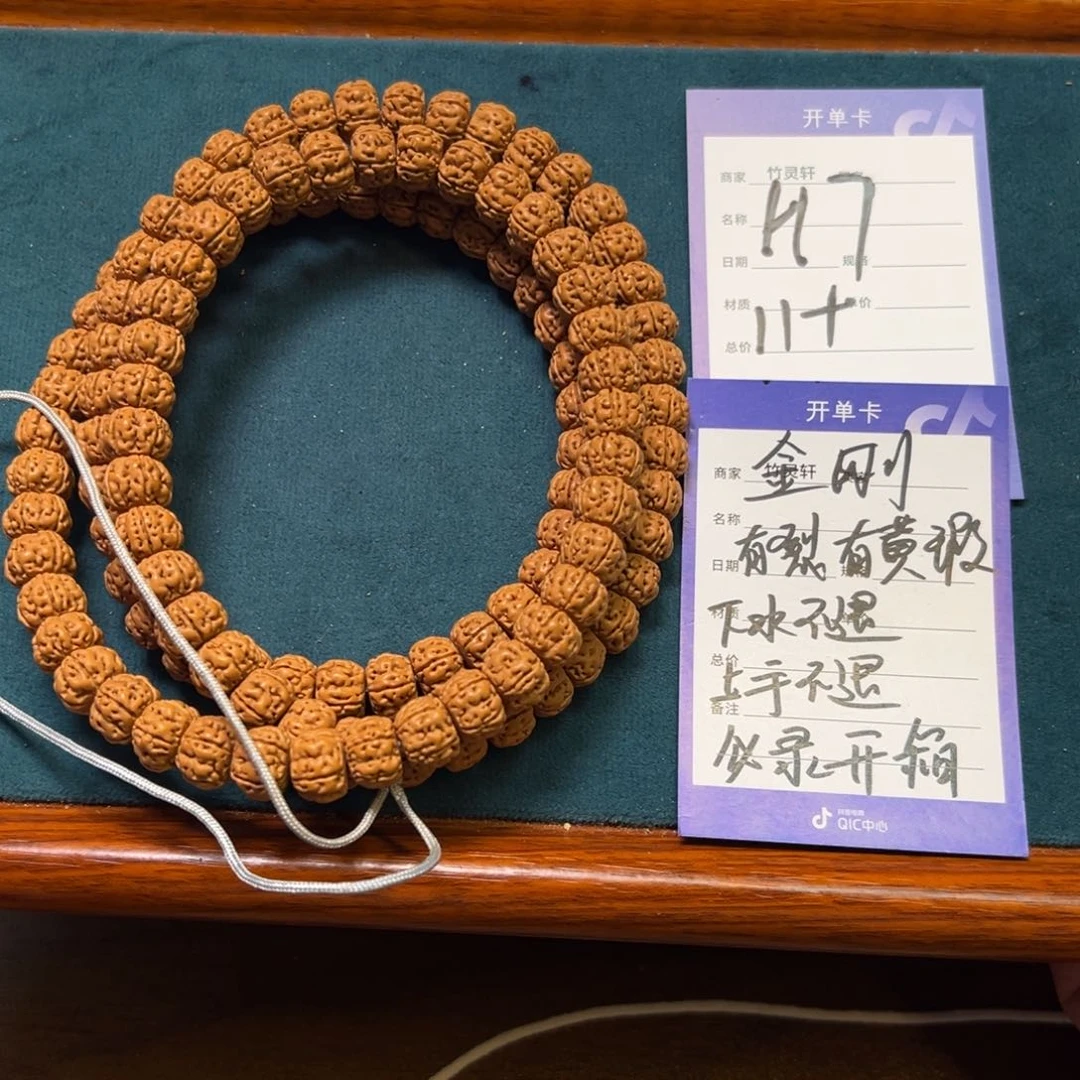 开单卡
商家 竹灵轩
名称 H7
日期 规格
材质 11+ 单价
总价
开单卡
商家 竹灵轩 金刚
名称
日期 有裂有黄瑕
材质 下水不退
总价 上手不退
备注
必录开箱
抖音电商
QIC中心